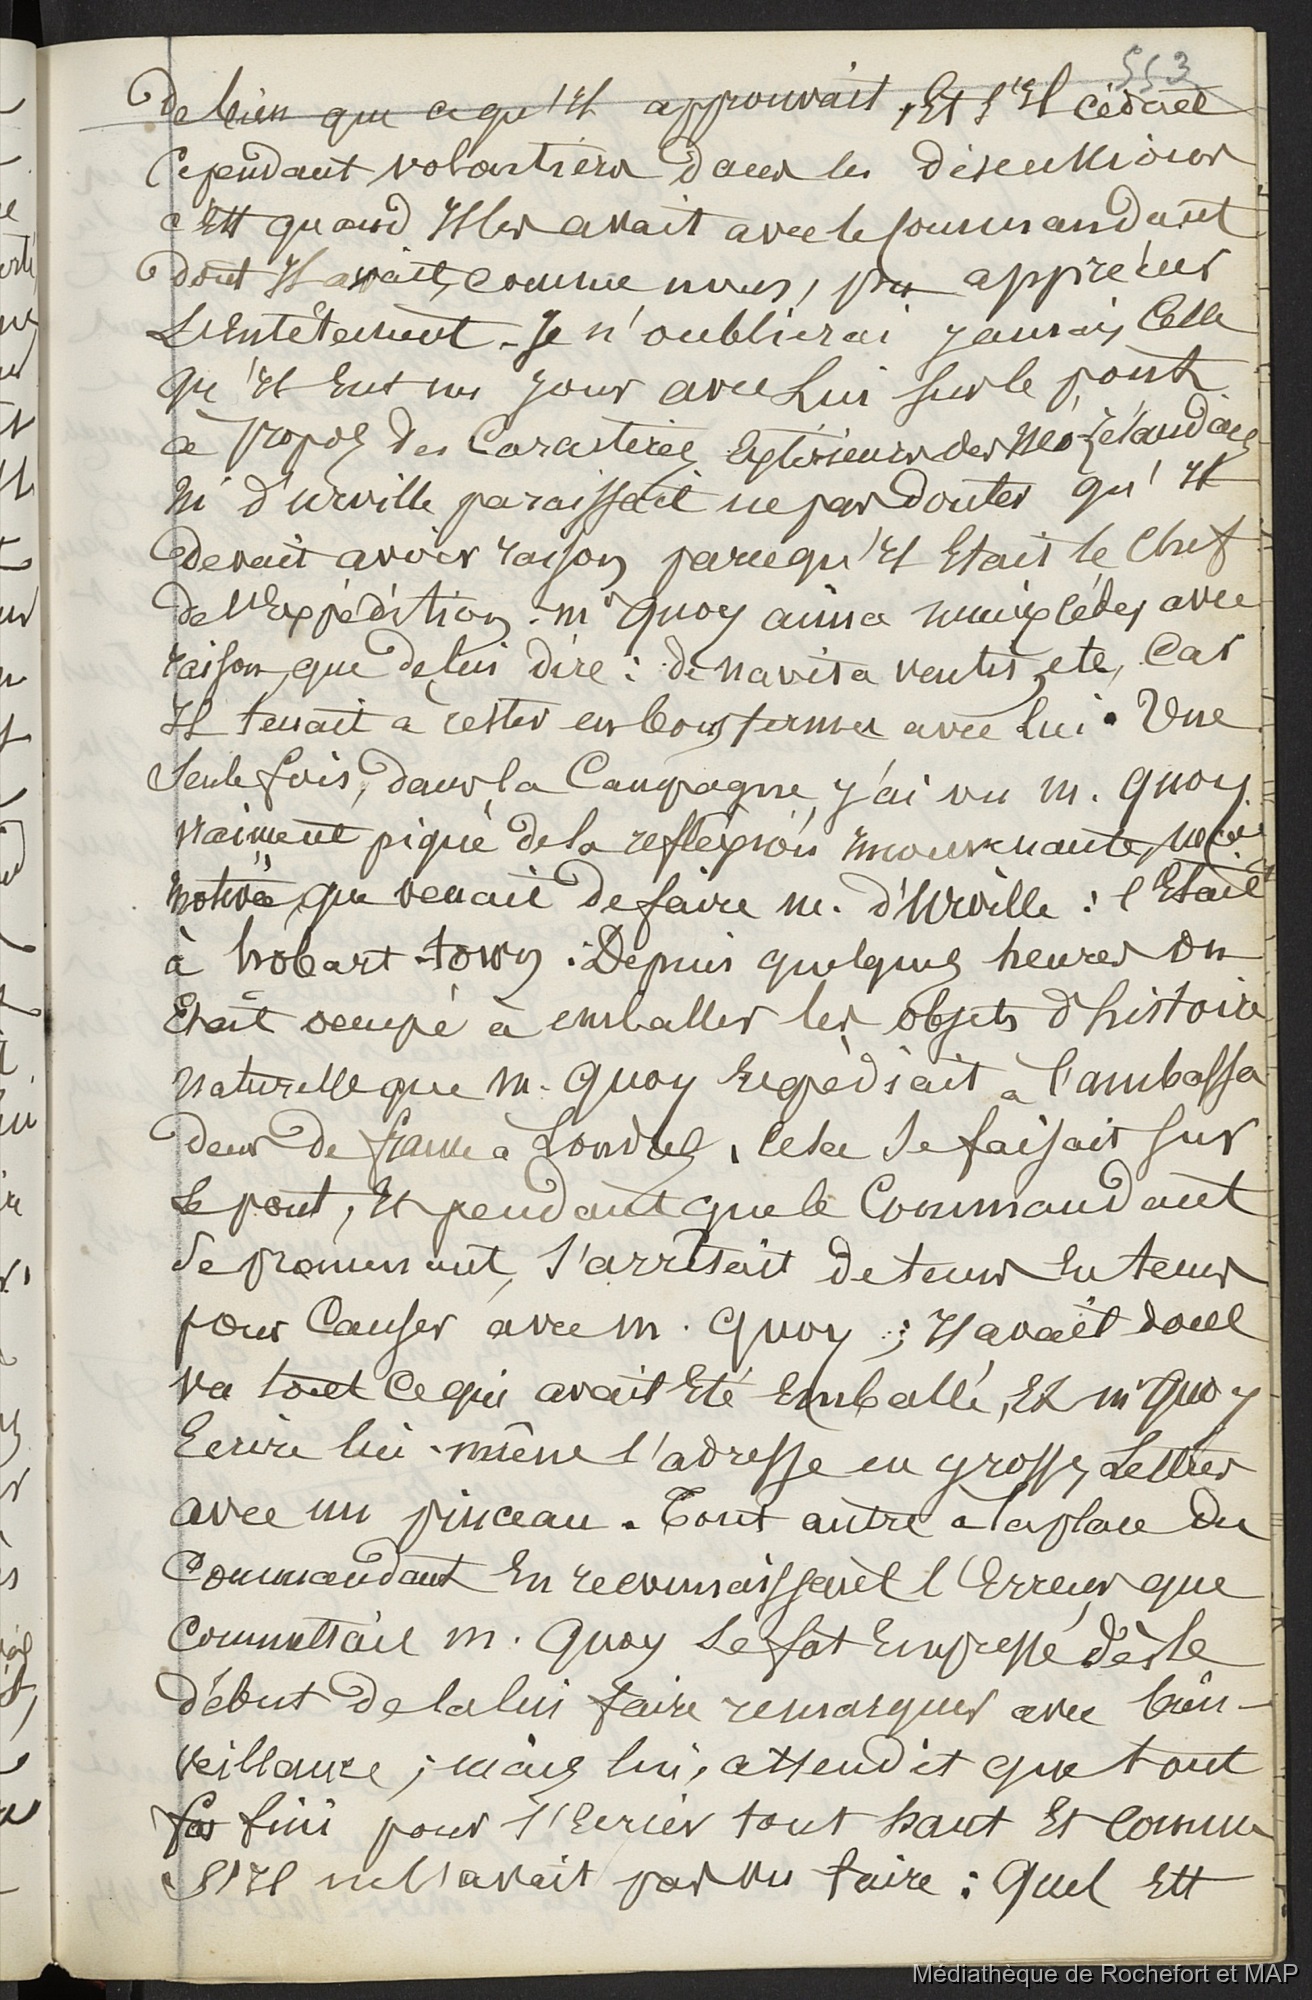 553
de bien que ce qu'il approuvait, Et s'Il cédait
Cependant volontiers dans les discussions
c'Est quand Il les avait avec le Commandant
dont Il avait, comme nous, pu apprécier
L'Entêtement - Je n'oublierai jamais Celle
qu'Il Eut un jour avec Lui sur le pont
à propos des Caractères Extérieurs des Néo-Zélandais
Mr d'urville paraissait ne pas douter qu'Il
devait avoir raison parcequ'Il Etait le Chef
de l'Expédition - mr Quoy aima mieux céder avec
raison que de lui dire : de navita ventis, etc, Car
Il tenait à rester en bons termes avec lui. Une
Seule fois, dans la Campagne, j'ai vu m. Quoy
vraiment piqué de la réflexion inconvenante,
motivée que venait de faire m. d'Urville : c'Etait
à hobart-town : Depuis quelques heures on
Etait occupé à emballer les objets d'histoire
naturelle que m. Quoy Expédiait à l'ambassa
deur de france à Londres. Cela Se faisait Sur
Le pont, Et pendant que le Commandant
Se promenant, S'arrêtait de tems En tems
pour Causer avec m. Quoy ; Il avait donc
vu tout Ce qui avait Eté Emballé, Et mr Quoy
Ecrire lui-même l'adresse en grosses Lettres
avec un pinceau. Tout autre à la place du
Commandant En reconnaissant l'Erreur que
Commettait m. Quoy Se fût Empressé dès le
début de la lui faire remarquer avec bien-
veillance ; mais lui, attendit que tout
fut fini pour S'Ecrier tout haut Et Comme
S'Il ne l'avait pas vu faire : Quel Est
Médiathèque de Rochefort et MAP